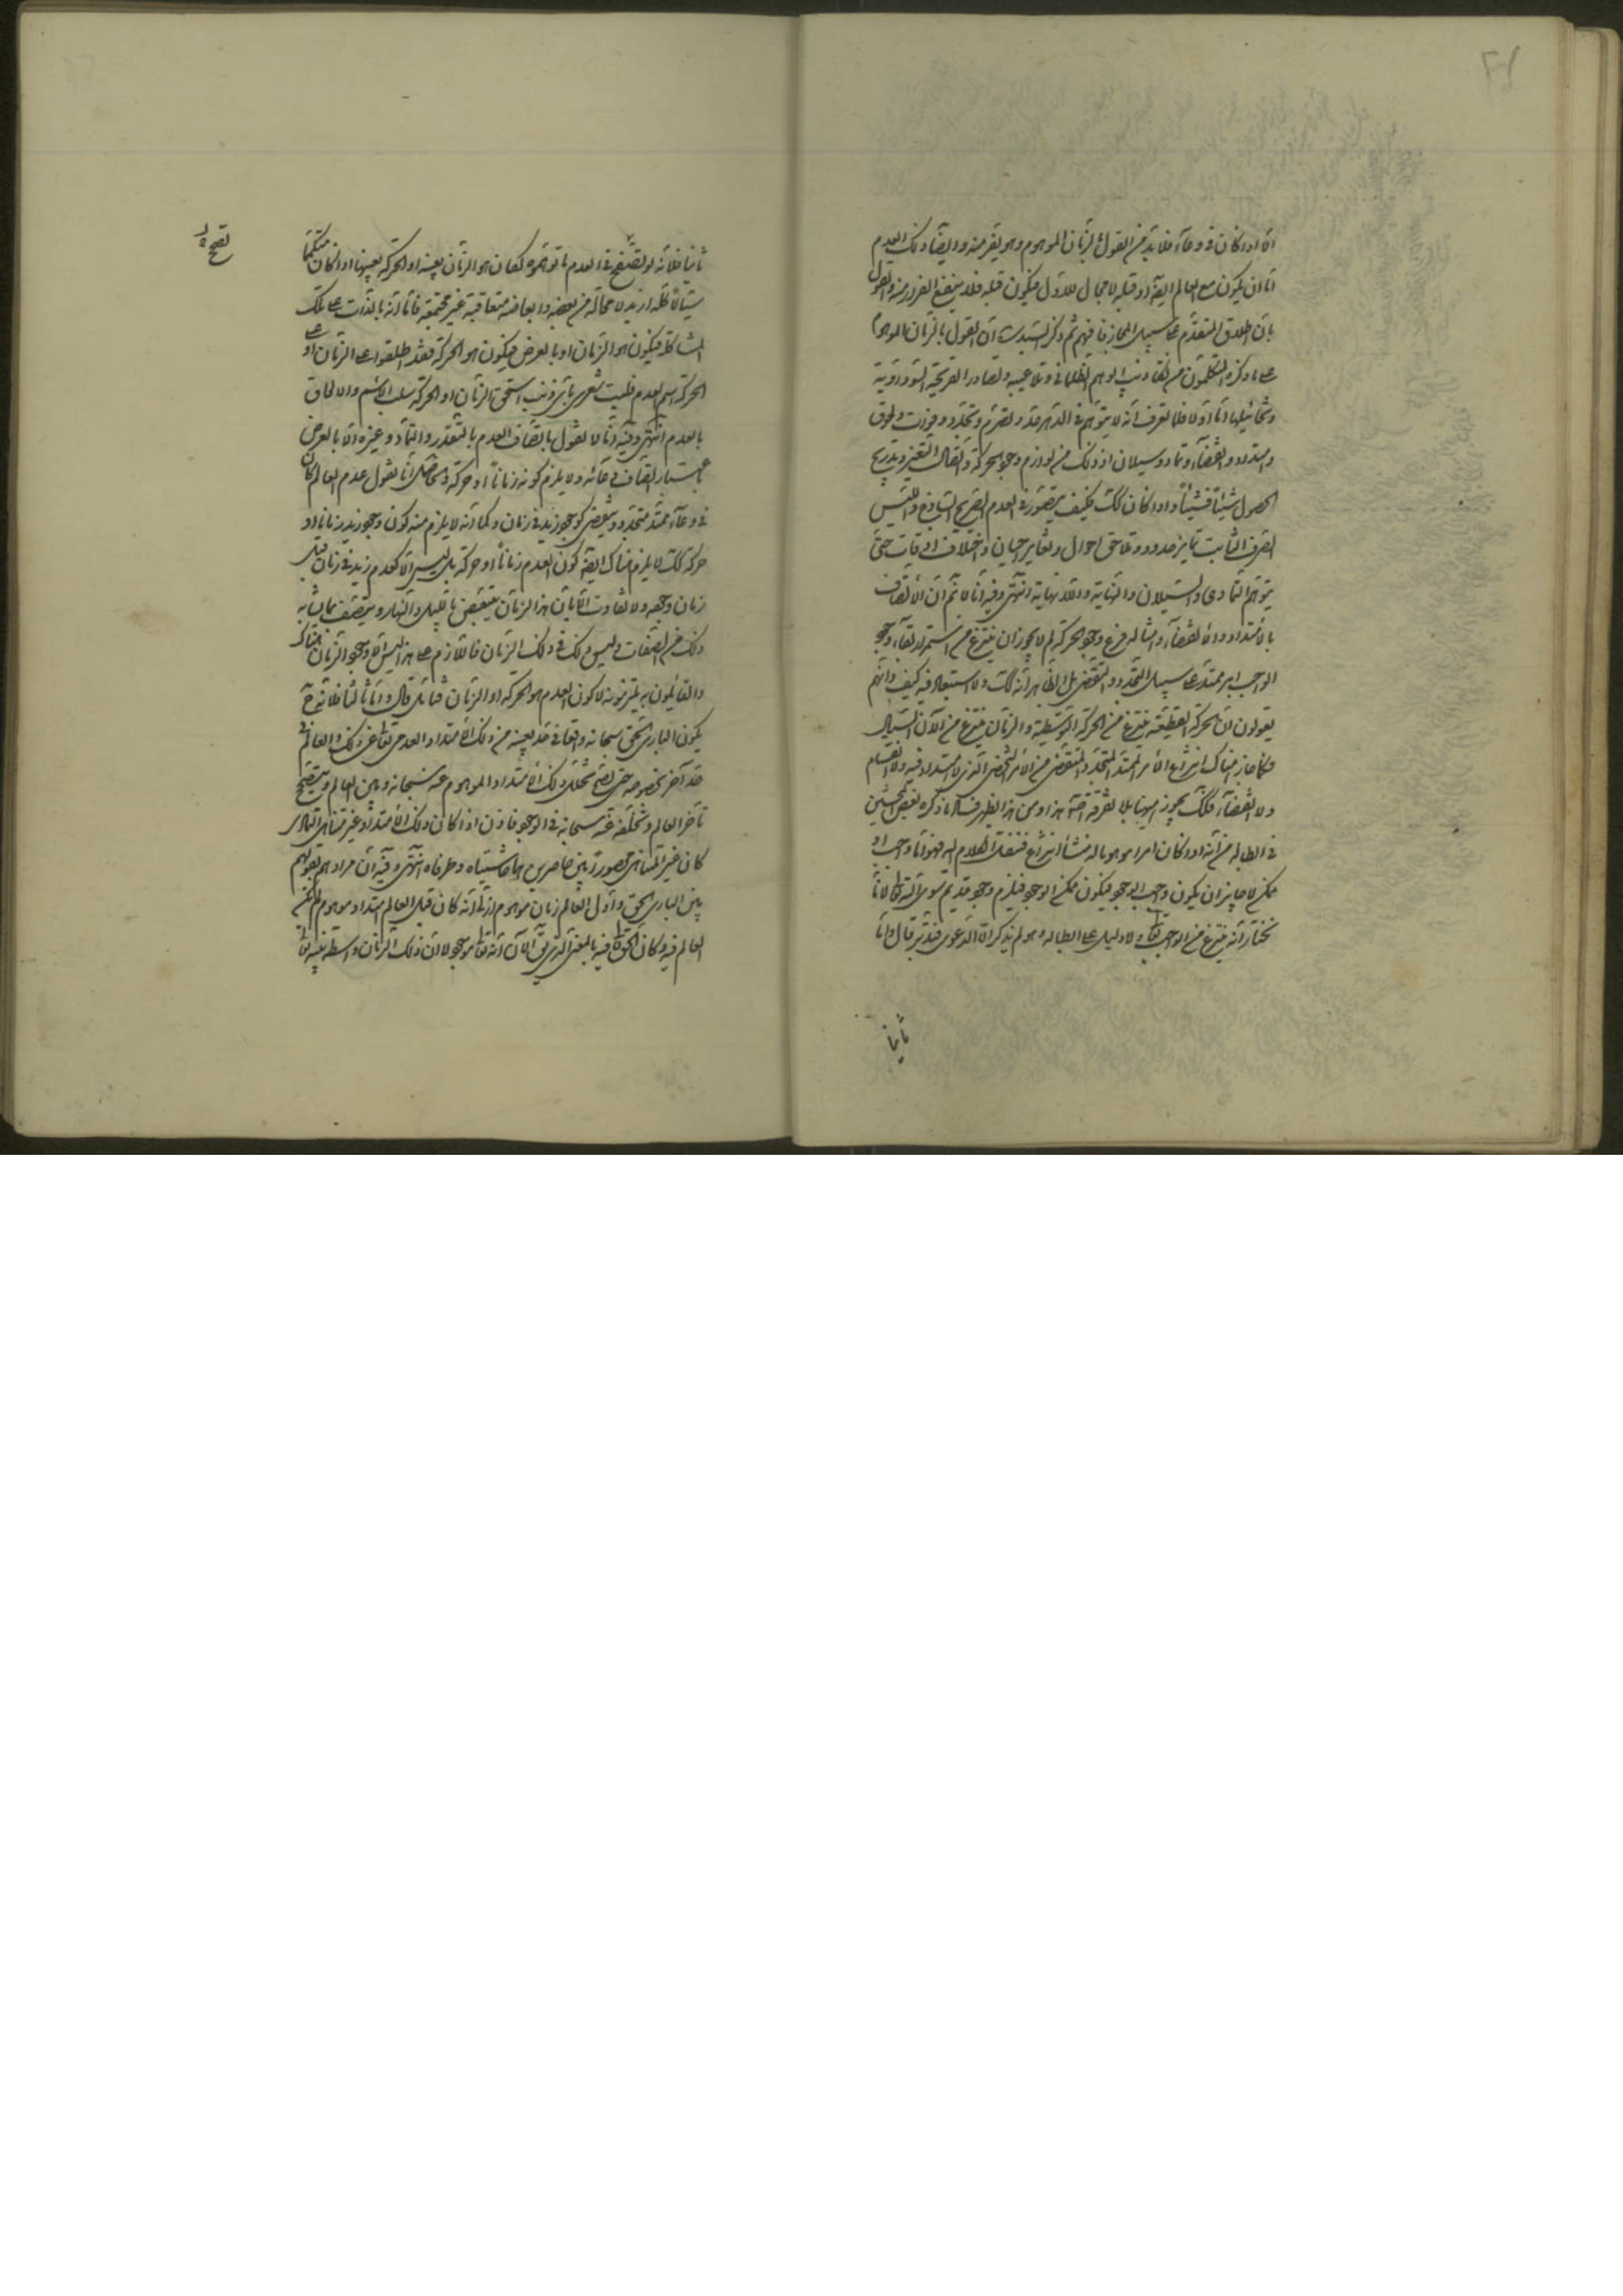 ٢١
اذا كان في وعاء فلا بد من القول بالزمان الموهوم وهو يفر منه وايضا ذلك العدم
اما ان يكون مع العالم ايضا او قبله لا مجال للاول فيكون قبله فلا ينفع الفرار منه والقول
بان اطلاق المتقدم على سبيل المجاز فافهم ثم ذكر السيد ان القول بالزمان الموهوم
على ما ذكره المتكلمون من تكاذيب الوهم الظلماني وتلاعيبه وتصاوير القريحة السوداوية
وتخائيلها اما اولا فلما تعرف انه لا يتوهم في الدهر حد وتصرم وتجدد وفوات ولحوق
وامتداد وانقضاء وتماد وسيلان اذ ذلك من لوازم وجود الحركة واتصال التغير وتدريج
الحصول شيئا فشيئا واذا كان كك فكيف يتصور في العدم الصريح الساذج والليس
الصرف الثابت تمايز حدود وتلاحق احوال وتغاير احيان واختلاف اوقات حتى
يتوهم التمادى والسيلان والنهاية واللانهاية انتهى وفيه انا لا نم ان الاتصاف
بالامتداد والانقضاء وامثاله فرع وجود الحركة لم لا يجوز ان ينتزع من استمرار بقاء وجود
الواجب امر ممتد على سبيل التجدد والتقضى بل الظاهر انه كك ولا استبعاد فيه كيف وانهم
يقولون ان الحركة القطعية ينتزع من الحركة التوسطية والزمان ينتزع من الآن السيال
فكما جاز هناك انتزاع الامر الممتد المتجدد المتقضى من الامر الشخصى الذى لا امتداد فيه ولا انقسام
ولا انقضاء فكك يجوز ههنا بلا تفرقة هذا ومن هذا يظهر فساد ما ذكره بعض المحشين
في ابطاله من انه اذا كان امرا موهوما له منشأ انتزاع فننقل الكلام اليه فهو اما واجب او
ممكن لا جائز ان يكون واجب الوجود فيكون ممكن الوجود فيلزم وجود قديم سوى الله تعالى لانا
نختار انه ينتزع من الواجب تعالى ولا دليل على ابطاله وهو لم يذكر الا الدعوى فتدبر قال واما
ثانيا
ثانيا فلانه لو تصحح في العدم ما توهموه لكان هو الزمان بعينه او الحركة بعينها اذا كان متكمما
سيالا كله ازيد لا محالة من بعضه وابعاضه متعاقبة غير مجتمعة فاما انه بالذات على تلك
المشاكلة فيكون هو الزمان او بالعرض فيكون هو الحركة فقد اطلقوا على الزمان او على
الحركة اسم العدم فليت شعرى باى ذنب استحق الزمان او الحركة سلب الاسم والالحاق
بالعدم انتهى وفيه انا لا نقول باتصاف العدم بالتقدر والتماد وغيره الا بالعرض
باعتبار اتصاف وعائه ولا يلزم كونه زمانا او حركة والحاصل انا نقول عدم العالم كان
في وعاء ممتد متجدد ومتقض كوجود زيد في زمان وكما انه لا يلزم منه كون وجود زيد زمانا او
حركة كك لا يلزم هناك ايضا كون العدم زمانا او حركة بل ليس الا كعدم زيد في زمان قبل
زمان وجوده ولا تفاوت الا بان هذا الزمان يتبعض بالليل والنهار ويتصف بما يشابه
ذلك من الصفات وليس ذلك في ذلك الزمان فاللازم على هذا ليس الا وجود الزمان هناك
والقائلون به يلتزمونه لا كون العدم هو الحركة او الزمان فتامل قال واما ثالثا فلانه ح
يكون البارى الحق سبحانه واقعا في حد بعينه من ذلك الامتداد العدمى تعالى عن ذلك والعالم في
حد آخر بخصوصه حتى يصح تخلل ذلك الامتداد الموهوم بينه سبحانه وبين العالم ويتصحح
تأخر العالم وتخلفه عنه سبحانه في الوجود فاذن اذا كان ذلك الامتداد غير متناهى التمادى
كان غير المتناهى محصورا بين حاصرين هما حاشيتاه وطرفاه انتهى وفيه ان مرادهم بقولهم
بين البارى الحق واول العالم زمان موهوم ازلى انه كان قبل العالم امتداد موهوم لم يكن
العالم فيه وكان الحق تعالى فيه بالمعنى الذى يق الآن انه تعالى موجود لا ان ذلك الزمان واسطة بينه تعالى